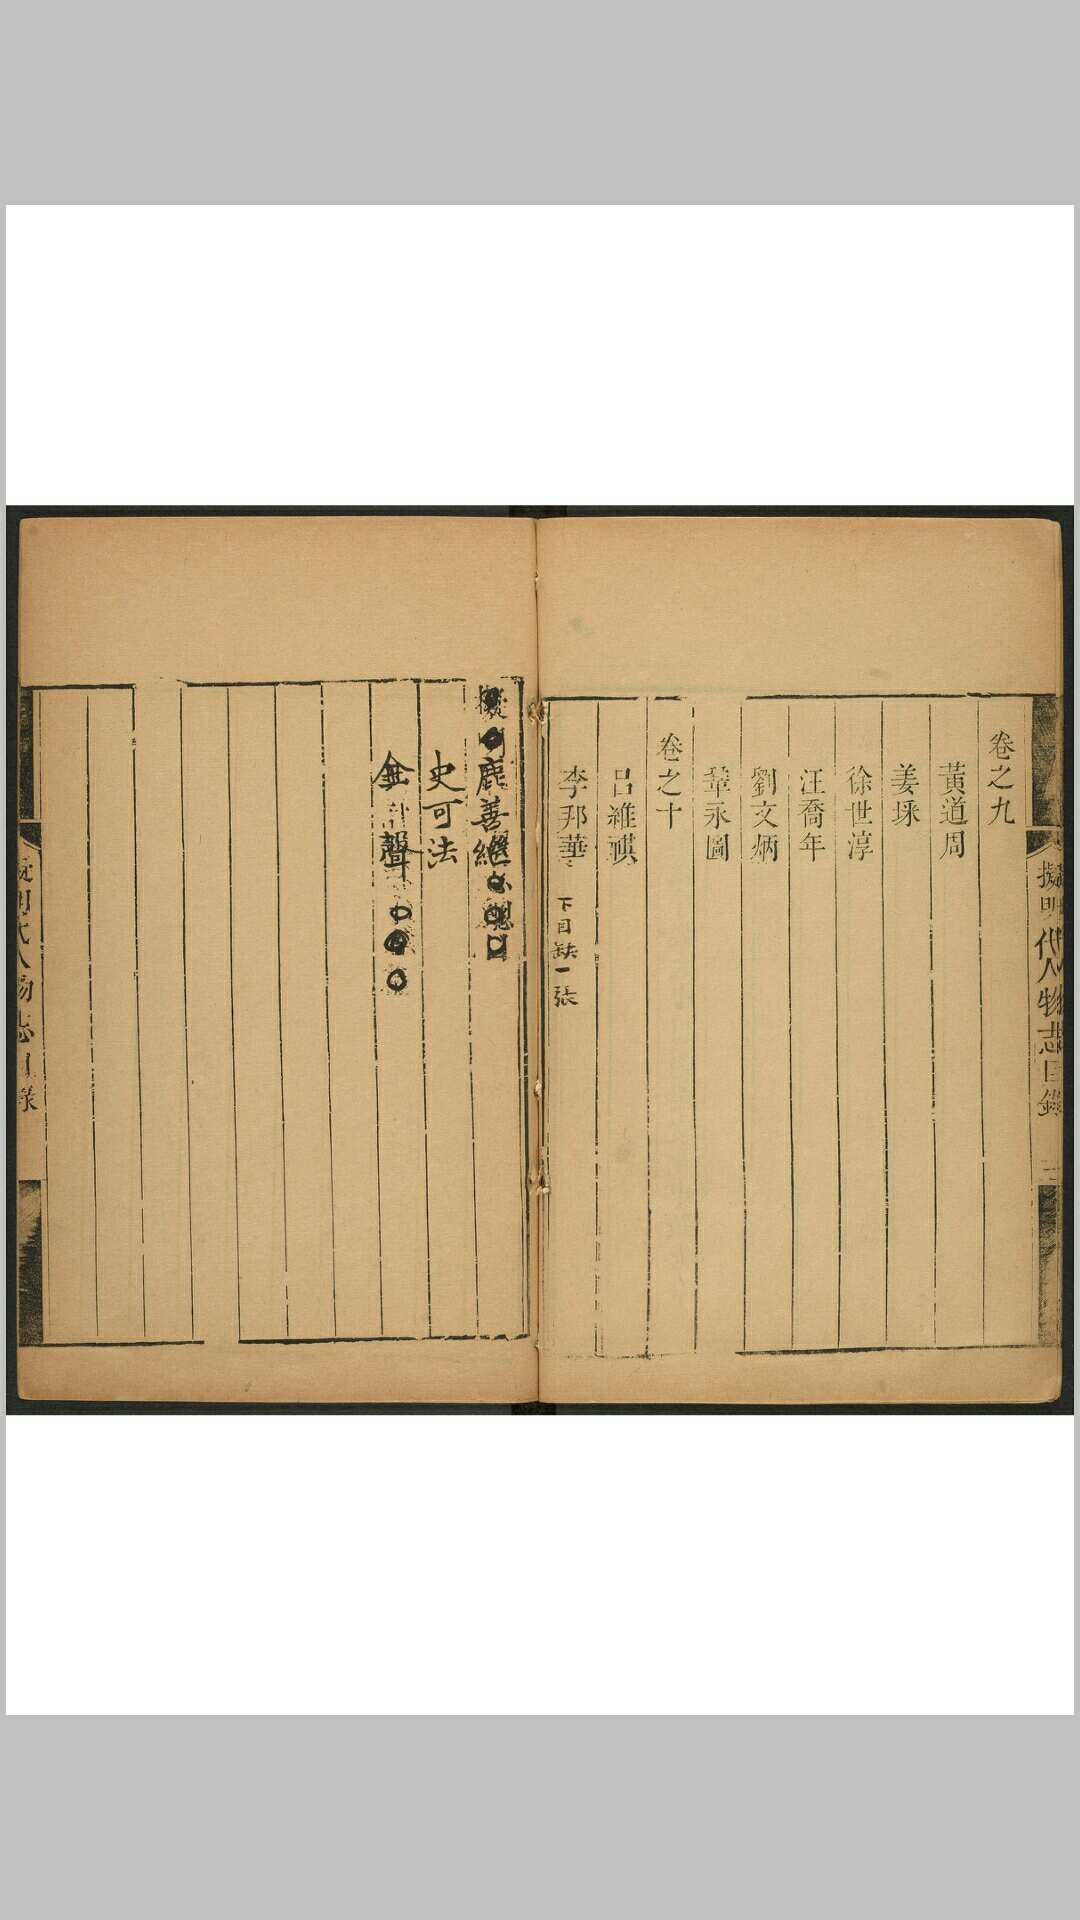 擬明代人物志目錄
二
卷之九
黃道周
姜埰
徐世淳
汪喬年
劉文炳
章永圖
卷之十
呂維祺
李邦華
下目缺一張
鹿善繼
史可法
金聲
擬明代人物志目錄